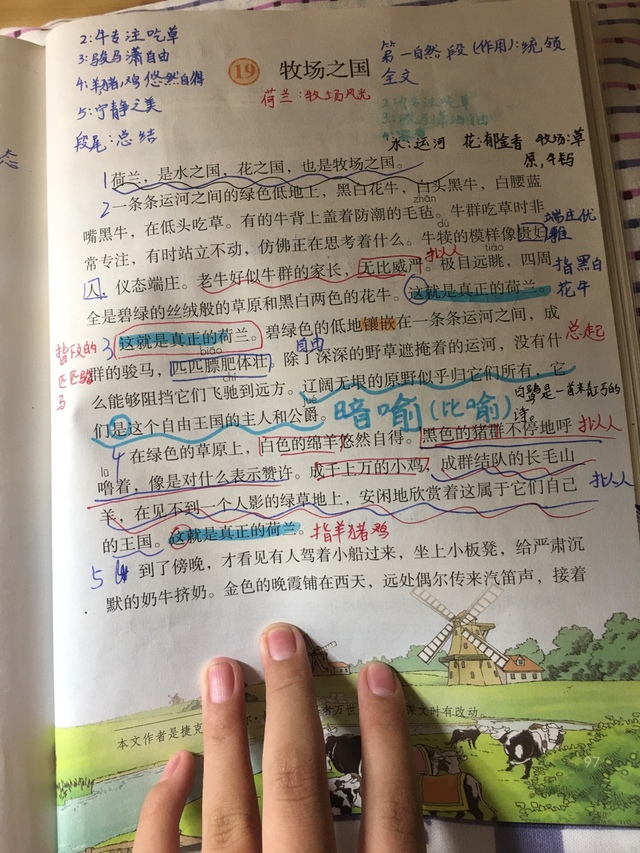 2:牛专注吃草
3:骏马潇自由
4:羊猪、鸡悠然自得
5:宁静之美
段尾:总结
第一自然段(作用):统领
全文
19 牧场之国
荷兰:牧场风光
水:运河 花:郁金香 牧场:草
原,牛
态
1荷兰,是水之国,花之国,也是牧场之国。
2一条条运河之间的绿色低地上,黑白花牛,白头黑牛,白腰蓝
zhān
嘴黑牛,在低头吃草。有的牛背上盖着防潮的毛毡。牛群吃草时非
端庄优
雅
dú
常专注,有时站立不动,仿佛正在思考着什么。牛犊的模样像贵妇
拟人
tiào
人,仪态端庄。老牛好似牛群的家长,无比威严。极目远眺,四周
指黑白
花牛
全是碧绿的丝绒般的草原和黑白两色的花牛。这就是真正的荷兰。
3 这就是真正的荷兰。碧绿色的低地镶嵌在一条条运河之间,成
总起
指下文的
匹匹
马
自由
biāo
群的骏马,匹匹膘肥体壮。除了深深的野草遮掩着的运河,没有什
chí
么能够阻挡它们飞驰到远方。辽阔无垠的原野似乎归它们所有,它
jué
们是这个自由王国的主人和公爵。
暗喻(比喻)
4在绿色的草原上,白色的绵羊悠然自得。黑色的猪群不停地呼
拟人
lu
噜着,像是对什么表示赞许。成千上万的小鸡,成群结队的长毛山
羊,在见不到一个人影的绿草地上,安闲地欣赏着这属于它们自己
拟人
的王国。这就是真正的荷兰。
指羊猪鸡
5 到了傍晚,才看见有人驾着小船过来,坐上小板凳,给严肃沉
默的奶牛挤奶。金色的晚霞铺在西天,远处偶尔传来汽笛声,接着
本文作者是捷克
文时有改动。
97